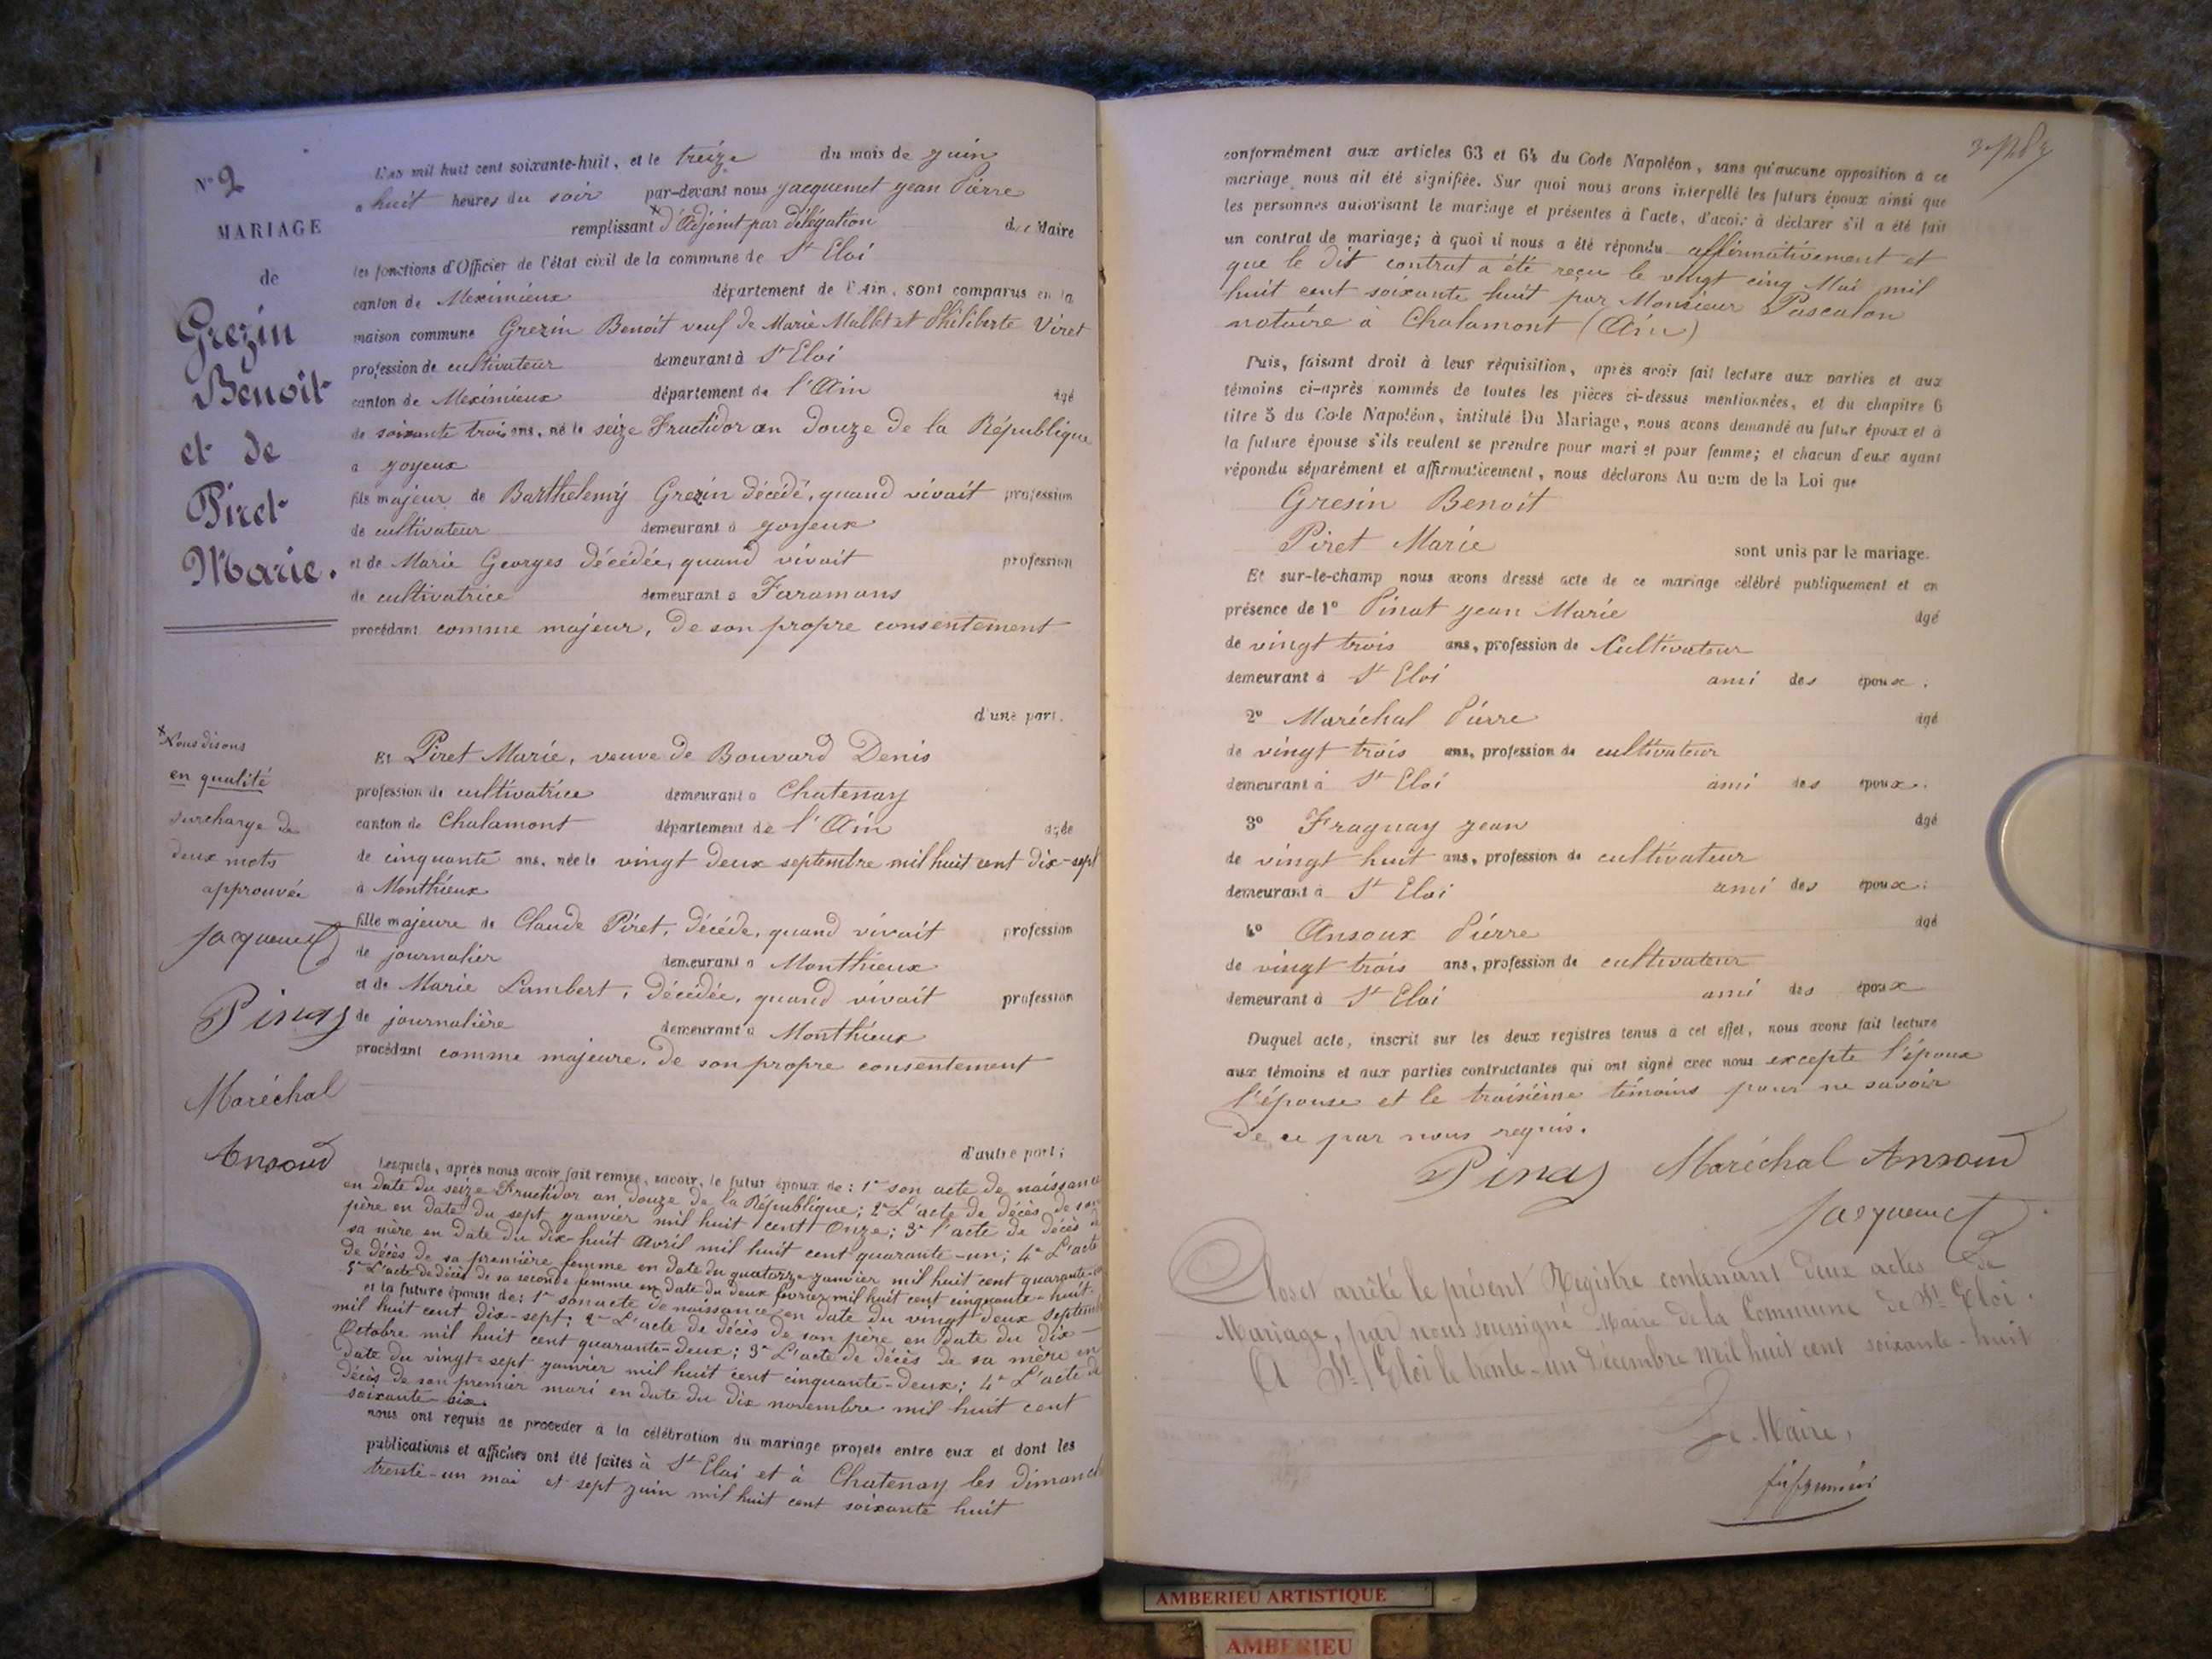 N° 2
MARIAGE
de
Grezin
Benoit
et de
Piret
Marie.
*Nous disons
en qualité
surcharge de
deux mots
approuvée
Jacquemet
Pinat
Maréchal
Ansoud
L'an mil huit cent soixante-huit, et le treize du mois de juin
a huit heures du soir par-devant nous Jacquemet Jean Pierre
remplissant * d'Adjoint par délégation du Maire
les fonctions d'Officier de l'état civil de la commune de St Eloi
canton de Meximieux département de l'Ain, sont comparus en la
maison commune Grezin Benoit veuf de Marie Mallet et Philiberte Viret
profession de cultivateur demeurant à St Eloi
canton de Meximieux département de l'Ain âgé
de soixante trois ans, né le seize Fructidor an douze de la République
a Joyeux
fils majeur de Barthelemy Grezin décédé, quand vivait profession
de cultivateur demeurant à Joyeux
et de Marie Georges décédée, quand vivait profession
de cultivatrice demeurant a Faramans
procédant comme majeur, de son propre consentement
d'une part.
Et Piret Marie, veuve de Bouvard Denis
profession de cultivatrice demeurant a Chatenay
canton de Chalamont département de l'Ain agée
de cinquante ans, née le vingt deux septembre mil huit cent dix-sept
à Monthieux
fille majeure de Claude Piret, décédé, quand vivait profession
de journalier demeurant a Monthieux
et de Marie Lambert, décédée, quand vivait profession
de journalière demeurant a Monthieux
procédant comme majeure, de son propre consentement
d'autre part;
Lesquels, après nous avoir fait remise, savoir, le futur époux de: 1° son acte de naissance
en date du seize Fructidor an douze de la République; 2° L'acte de décès de son
père en date du sept janvier mil huit cent Onze; 3° l'acte de décès de
sa mère en date du dix-huit Avril mil huit cent quarante-un; 4° L'acte
de décès de sa première femme en date du quatorze janvier mil huit cent quarante-
5° L'acte de décès de sa seconde femme en date du deux février mil huit cent cinquante-huit
et la future épouse de: 1° son acte de naissance en date du vingt deux septembre
mil huit cent dix-sept; 2° L'acte de décès de son père en date du dix-
Octobre mil huit cent quarante-deux; 3° L'acte de décès de sa mère en
date du vingt-sept janvier mil huit cent cinquante-deux; 4° L'acte de
décès de son premier mari en date du dix novembre mil huit cent
soixante-six.
nous ont requis de procéder à la célébration du mariage projeté entre eux et dont les
publications et affiches ont été faites à St Eloi et à Chatenay les dimanches
trente-un mai et sept juin mil huit cent soixante huit
conformément aux articles 63 et 64 du Code Napoléon, sans qu'aucune opposition à ce
mariage nous ait été signifiée. Sur quoi nous avons interpellé les futurs époux ainsi que
les personnes autorisant le mariage et présentes à l'acte, d'avoir à déclarer s'il a été fait
un contrat de mariage; à quoi il nous a été répondu affirmativement et
que le dit contrat a été reçu le vingt cinq Mai mil
huit cent soixante huit par Monsieur Pascalon
notaire à Chalamont (Ain)
Puis, faisant droit à leur réquisition, après avoir fait lecture aux parties et aux
témoins ci-après nommés de toutes les pièces ci-dessus mentionnées, et du chapitre 6
titre 5 du Code Napoléon, intitulé Du Mariage, nous avons demandé au futur époux et à
la future épouse s'ils veulent se prendre pour mari et pour femme; et chacun d'eux ayant
répondu séparément et affirmativement, nous déclarons Au nom de la Loi que
Gresin Benoit
Piret Marie sont unis par le mariage.
Et sur-le-champ nous avons dressé acte de ce mariage célébré publiquement et en
présence de 1° Pinat Jean Marie âgé
de vingt trois ans, profession de Cultivateur
demeurant à St Eloi ami des époux.
2° Maréchal Pierre âgé
de vingt trois ans, profession de cultivateur
demeurant à St Eloi ami des époux.
3° Fraguay Jean âgé
de vingt huit ans, profession de cultivateur
demeurant à St Eloi ami des époux.
4° Ansoux Pierre âgé
de vingt trois ans, profession de cultivateur
demeurant à St Eloi ami des époux
Duquel acte, inscrit sur les deux registres tenus à cet effet, nous avons fait lecture
aux témoins et aux parties contractantes qui ont signé avec nous excepte l'époux
l'épouse et le troisième témoins pour ne savoir
de ce par nous requis.
Pinat Maréchal Ansoud
Jacquemet
Clos et arrêté le présent Registre contenant deux actes de
Mariage, par nous soussigné Maire de la Commune de St Eloi.
A St Eloi le trente-un Décembre mil huit cent soixante-huit
Le Maire,
AMBERIEU ARTISTIQUE
AMBERIEU